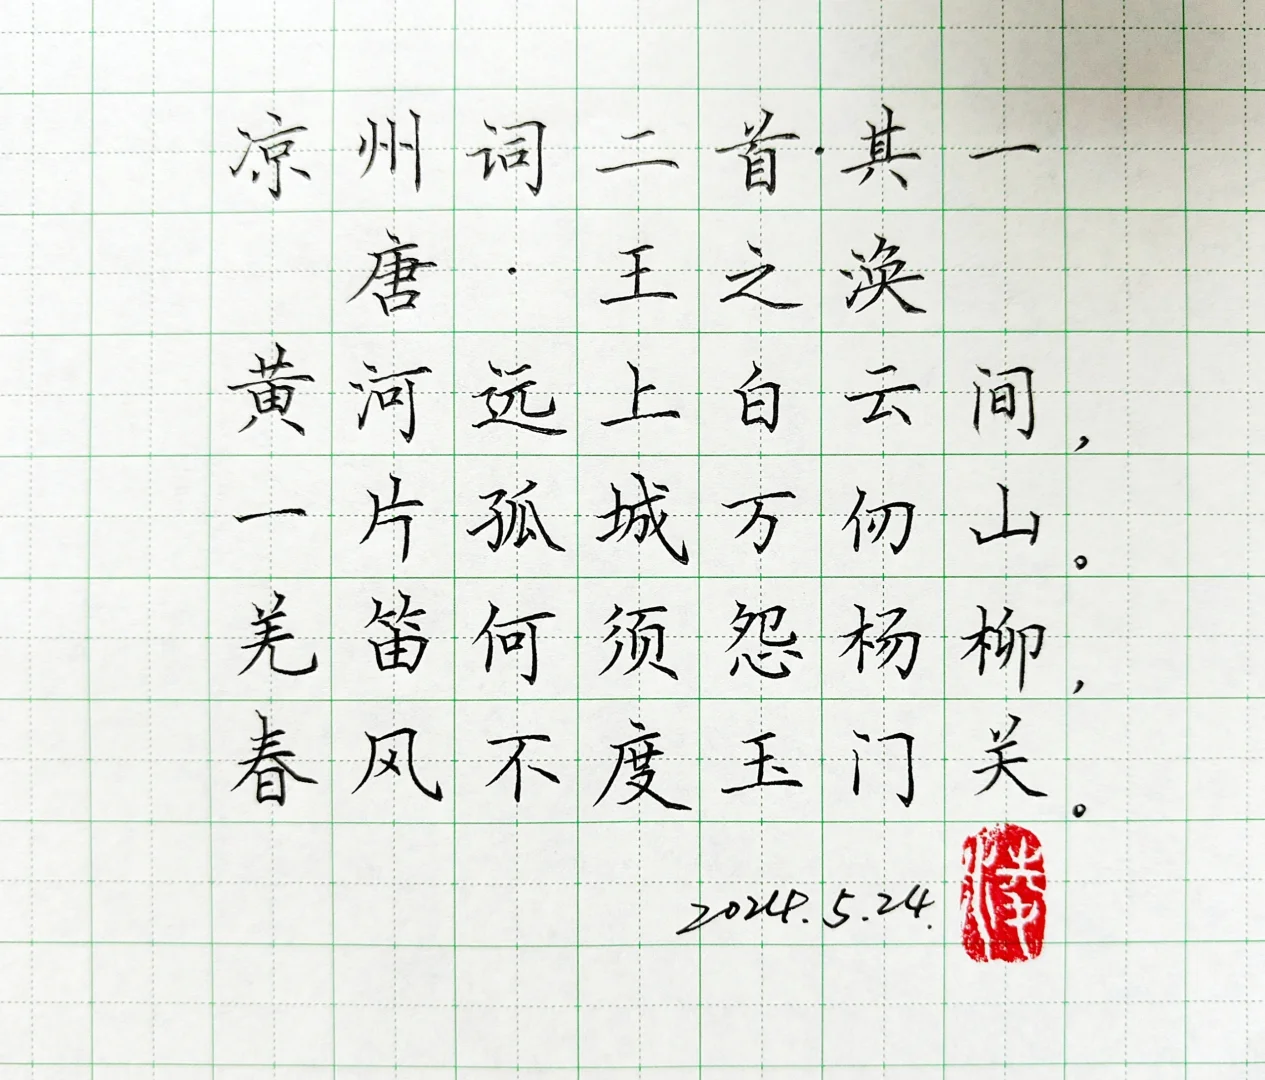 凉州词二首·其一
唐·王之涣
黄河远上白云间，
一片孤城万仞山。
羌笛何须怨杨柳，
春风不度玉门关。
2024.5.24.